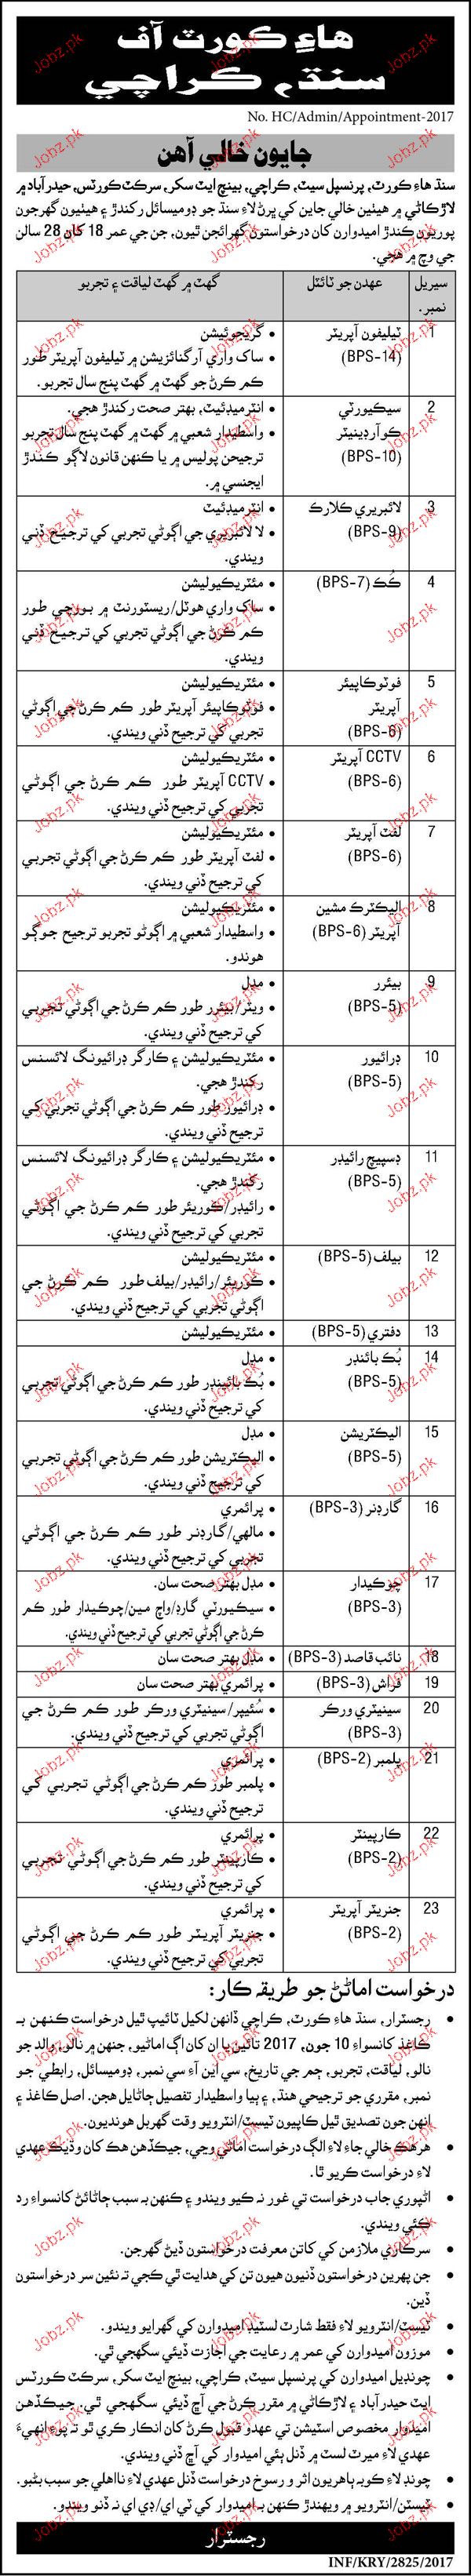 هاءِ ڪورٽ آف
سنڌ، ڪراچي
No. HC/Admin/Appointment-2017
جايون خالي آهن
سنڌ هاءِ ڪورٽ، پرنسپل سيٽ، ڪراچي، بينچ ايٽ سکر، سرڪٽ ڪورٽس، حيدرآباد ۽
لاڙڪاڻي ۾ هيٺين خالي جاين کي ڀرڻ لاءِ سنڌ جو ڊوميسائل رکندڙ ۽ هيٺيون گهرجون
پوريون ڪندڙ اميدوارن کان درخواستون گهرائجن ٿيون، جن جي عمر 18 کان 28 سالن
جي وچ ۾ هجي.
سيريل نمبر.
عهدن جو ٽائٽل
گهٽ ۾ گهٽ لياقت ۽ تجربو
1
ٽيليفون آپريٽر
(BPS-14)
• گريجوئيشن
• ساک واري آرگنائزيشن ۾ ٽيليفون آپريٽر طور
ڪم ڪرڻ جو گهٽ ۾ گهٽ پنج سال تجربو.
2
سيڪيورٽي
ڪوآرڊينيٽر
(BPS-10)
• انٽرميڊئيٽ، بهتر صحت رکندڙ هجي.
• واسطيدار شعبي ۾ گهٽ ۾ گهٽ پنج سال تجربو
ترجيحن پوليس ۾ يا ڪنهن قانون لاڳو ڪندڙ
ايجنسي ۾.
3
لائبريري ڪلارڪ
(BPS-9)
• انٽرميڊئيٽ
• لا لائبريري جي اڳوڻي تجربي کي ترجيح ڏني
ويندي.
4
ڪُڪ (BPS-7)
• مئٽريڪيوليشن
• ساک واري هوٽل/ريسٽورنٽ ۾ بورچي طور
ڪم ڪرڻ جي اڳوڻي تجربي کي ترجيح ڏني
ويندي.
5
فوٽوڪاپيئر
آپريٽر
(BPS-6)
• مئٽريڪيوليشن
• فوٽوڪاپيئر آپريٽر طور ڪم ڪرڻ جي اڳوڻي
تجربي کي ترجيح ڏني ويندي.
6
CCTV آپريٽر
(BPS-6)
• مئٽريڪيوليشن
• CCTV آپريٽر طور ڪم ڪرڻ جي اڳوڻي
تجربي کي ترجيح ڏني ويندي.
7
لفٽ آپريٽر
(BPS-6)
• مئٽريڪيوليشن
• لفٽ آپريٽر طور ڪم ڪرڻ جي اڳوڻي تجربي
کي ترجيح ڏني ويندي.
8
اليڪٽرڪ مشين
آپريٽر (BPS-6)
• مئٽريڪيوليشن
• واسطيدار شعبي ۾ اڳوڻو تجربو ترجيح جوڳو
هوندو.
9
بيئرر
(BPS-5)
• مڊل
• ويٽر/بيئرر طور ڪم ڪرڻ جي اڳوڻي تجربي
کي ترجيح ڏني ويندي.
10
ڊرائيور
(BPS-5)
• مئٽريڪيوليشن ۽ ڪارگر ڊرائيونگ لائسنس
رکندڙ هجي.
• ڊرائيور طور ڪم ڪرڻ جي اڳوڻي تجربي کي
ترجيح ڏني ويندي.
11
ڊسپيچ رائيڊر
(BPS-5)
• مئٽريڪيوليشن ۽ ڪارگر ڊرائيونگ لائسنس
رکندڙ هجي.
• رائيڊر/ڪوريئر طور ڪم ڪرڻ جي اڳوڻي
تجربي کي ترجيح ڏني ويندي.
12
بيلف (BPS-5)
• مئٽريڪيوليشن
• ڪوريئر/رائيڊر/بيلف طور ڪم ڪرڻ جي
اڳوڻي تجربي کي ترجيح ڏني ويندي.
13
دفتري (BPS-5)
• مئٽريڪيوليشن
14
بُڪ بائنڊر
(BPS-5)
• مڊل
• بُڪ بائينڊر طور ڪم ڪرڻ جي اڳوڻي تجربي
کي ترجيح ڏني ويندي.
15
اليڪٽريشن
(BPS-5)
• مڊل
• اليڪٽريشن طور ڪم ڪرڻ جي اڳوڻي تجربي
کي ترجيح ڏني ويندي.
16
گارڊنر (BPS-3)
• پرائمري
• مالهي/گارڊنر طور ڪم ڪرڻ جي اڳوڻي
تجربي کي ترجيح ڏني ويندي.
17
چوڪيدار
(BPS-3)
• مڊل بهتر صحت سان.
• سيڪيورٽي گارڊ/واچ مين/چوڪيدار طور ڪم
ڪرڻ جي اڳوڻي تجربي کي ترجيح ڏني ويندي.
18
نائب قاصد (BPS-3)
• مڊل بهتر صحت سان
19
فراش (BPS-3)
• پرائمري بهتر صحت سان
20
سينيٽري ورڪر
(BPS-3)
• سُئيپر/سينيٽري ورڪر طور ڪم ڪرڻ جي
اڳوڻي تجربي کي ترجيح ڏني ويندي.
21
پلمبر (BPS-2)
• پرائمري
• پلمبر طور ڪم ڪرڻ جي اڳوڻي تجربي کي
ترجيح ڏني ويندي.
22
ڪارپينٽر
(BPS-2)
• پرائمري
• ڪارپينٽر طور ڪم ڪرڻ جي اڳوڻي تجربي
کي ترجيح ڏني ويندي.
23
جنريٽر آپريٽر
(BPS-2)
• پرائمري
• جنريٽر آپريٽر طور ڪم ڪرڻ جي اڳوڻي
تجربي کي ترجيح ڏني ويندي.
درخواست اماڻڻ جو طريقہ ڪار:
• رجسٽرار، سنڌ هاءِ ڪورٽ، ڪراچي ڏانهن لکيل ٽائيپ ٿيل درخواست ڪنهن بہ
ڪاغذ کانسواءِ 10 جون، 2017 تائين يا ان کان اڳ اماڻيو، جنهن ۾ نالو، والد جو
نالو، لياقت، تجربو، ڄم جي تاريخ، سي اين آءِ سي نمبر، ڊوميسائل، رابطي جو
نمبر، مقرري جو ترجيحي هنڌ، ۽ ٻيا واسطيدار تفصيل ڄاڻايل هجن. اصل ڪاغذ ۽
انهن جون تصديق ٿيل ڪاپيون ٽيسٽ/انٽرويو وقت گهربل هونديون.
• هر هڪ خالي جاءِ لاءِ الڳ درخواست اماڻي وڃي، جيڪڏهن هڪ کان وڌيڪ عهدي
لاءِ درخواست ڪريو ٿا.
• اڻپوري جاب درخواست تي غور نہ ڪيو ويندو ۽ ڪنهن بہ سبب ڄاڻائڻ کانسواءِ رد
ڪئي ويندي.
• سرڪاري ملازمن کي کاتن معرفت درخواستون ڏيڻ گهرجن.
• جن پهرين درخواستون ڏنيون هيون تن کي هدايت ٿي ڪجي تہ نئين سر درخواستون
ڏين.
• ٽيسٽ/انٽرويو لاءِ فقط شارٽ لسٽيڊ اميدوارن کي گهرايو ويندو.
• موزون اميدوارن کي عمر ۾ رعايت جي اجازت ڏيئي سگهجي ٿي.
• چونڊيل اميدوارن کي پرنسپل سيٽ، ڪراچي، بينچ ايٽ سکر، سرڪٽ ڪورٽس
ايٽ حيدرآباد ۽ لاڙڪاڻي ۾ مقرر ڪرڻ جي آڇ ڏيئي سگهجي ٿي. جيڪڏهن
اميدوار مخصوص اسٽيشن تي عهدو قبول ڪرڻ کان انڪار ڪري ٿو تہ پوءِ انهيءَ
عهدي لاءِ ميرٽ لسٽ ۾ ڏنل ٻئي اميدوار کي آڇ ڏني ويندي.
• چونڊ لاءِ ڪوبہ ٻاهريون اثر و رسوخ درخواست ڏنل عهدي لاءِ نااهلي جو سبب بڻبو.
• ٽيسٽن/انٽرويو ۾ ويهندڙ ڪنهن بہ اميدوار کي ٽي اي/ڊي اي نہ ڏنو ويندو.
رجسٽرار
INF/KRY/2825/2017